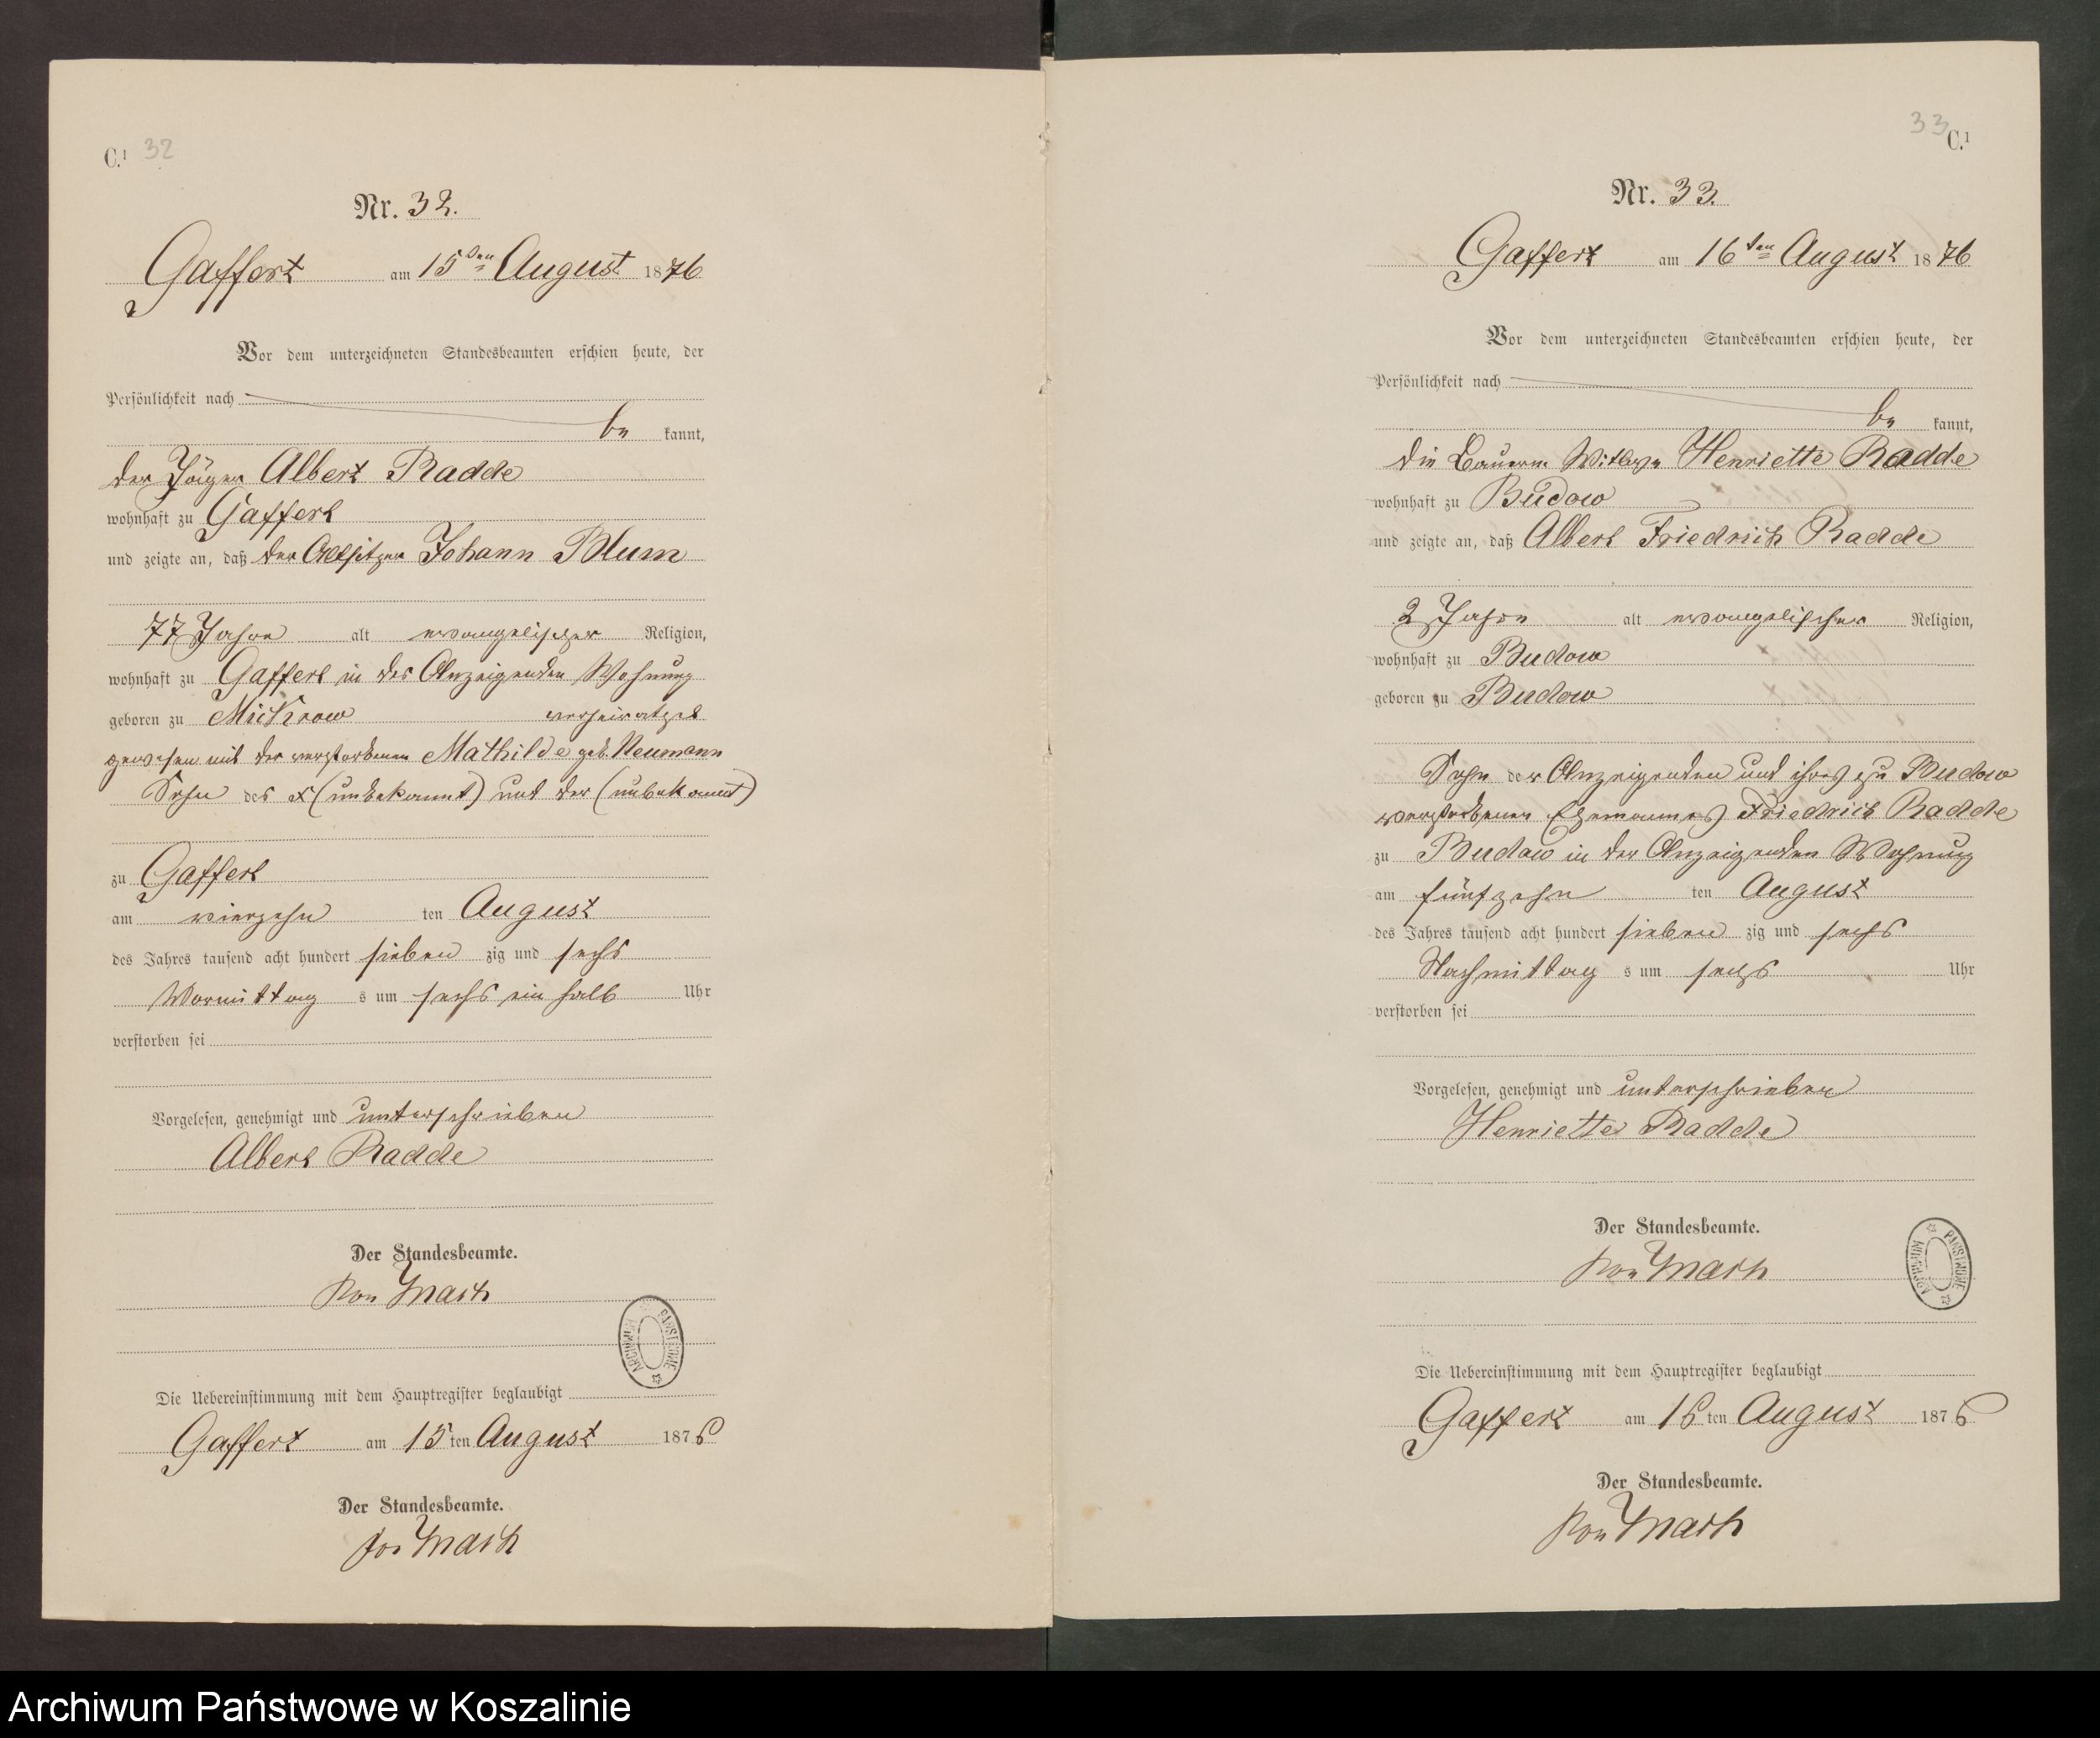 C.¹ 32
Nr. 32.
Gaffert am 15ten August 1876
Vor dem unterzeichneten Standesbeamten erschien heute, der
Persönlichkeit nach
be kannt,
der Jäger Albert Radde
wohnhaft zu Gaffert
und zeigte an, daß der Altsitzer Johann Blum
77 Jahre alt evangelischer Religion,
wohnhaft zu Gaffert in des Anzeigenden Wohnung
geboren zu Mickrow verheirathet
gewesen mit der verstorbenen Mathilde geb. Neumann
Sohn des (unbekannt) und der (unbekannt)
zu Gaffert
am vierzehn ten August
des Jahres tausend acht hundert sieben zig und sechs
Vormittag s um sechs ein halb Uhr
verstorben sei
Vorgelesen, genehmigt und unterschrieben
Albert Radde
Der Standesbeamte.
von Mach
ARCHIWUM PAŃSTWOWE
Die Uebereinstimmung mit dem Hauptregister beglaubigt
Gaffert am 15 ten August 1876
Der Standesbeamte.
von Mach
33 C.¹
Nr. 33.
Gaffert am 16ten August 1876
Vor dem unterzeichneten Standesbeamten erschien heute, der
Persönlichkeit nach
be kannt,
die Bauern Witwe Henriette Radde
wohnhaft zu Budow
und zeigte an, daß Albert Friedrich Radde
2 Jahre alt evangelischer Religion,
wohnhaft zu Budow
geboren zu Budow
Sohn der Anzeigenden und ihres zu Budow
verstorbenen Ehemannes Friedrich Radde
zu Budow in der Anzeigenden Wohnung
am fünfzehn ten August
des Jahres tausend acht hundert sieben zig und sechs
Nachmittag s um sechs Uhr
verstorben sei
Vorgelesen, genehmigt und unterschrieben
Henriette Radde
Der Standesbeamte.
von Mach
ARCHIWUM PAŃSTWOWE
Die Uebereinstimmung mit dem Hauptregister beglaubigt
Gaffert am 16 ten August 1876
Der Standesbeamte.
von Mach
Archiwum Państwowe w Koszalinie